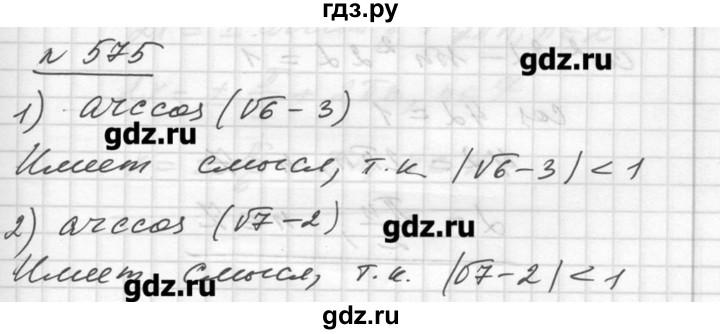 гдз.ру
n 575
gdz.ru
1) arccos (√6 - 3)
gdz.ru
Имеет смысл, т.к. |√6 - 3| < 1
2) arccos (√7 - 2)
gdz.ru
Имеет смысл, т.к. |√7 - 2| < 1
gdz.ru
gdz.ru